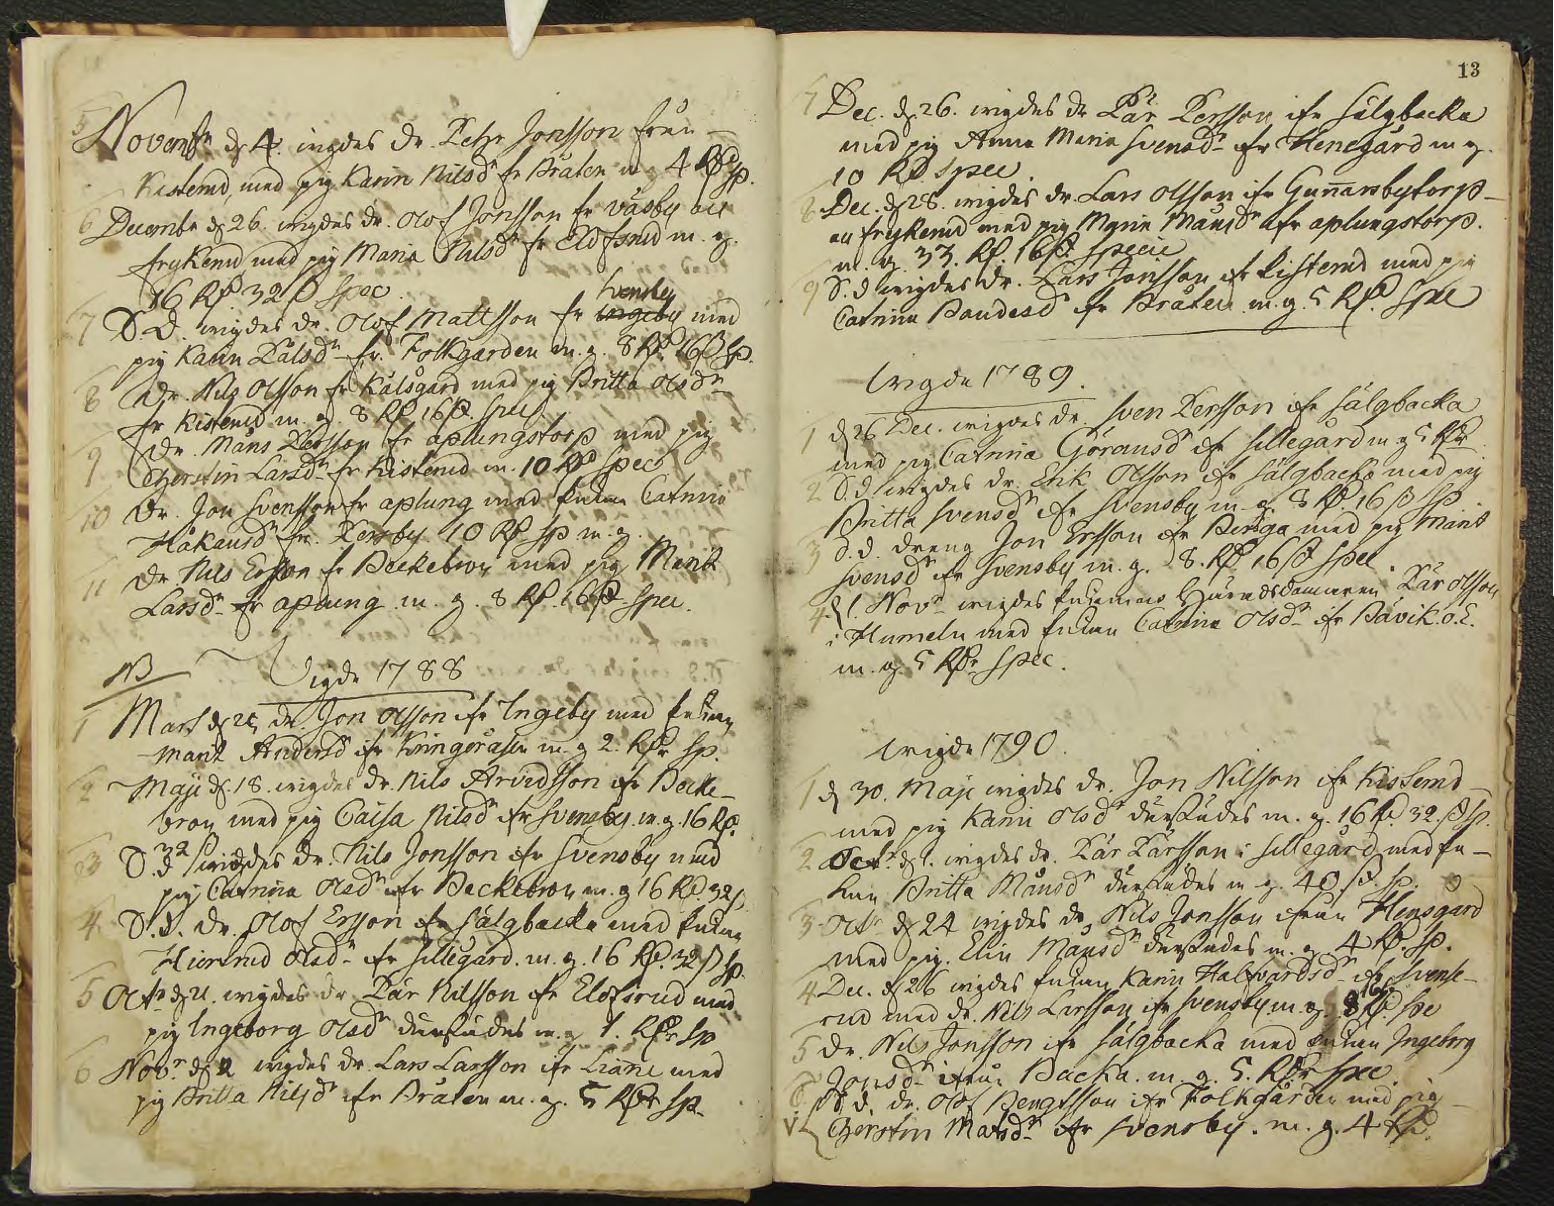 5 Novembr d. 4. wigdes dr. Petter Jonsson från
Kisterud, med pig Karin Nilsdr fr Bråten m. g 4 Rd sp.
6 Decembr d. 26. wigdes dr. Olof Jonsson fr väsby
frykerud med pig Maria Nilsdr fr Elofsrud m. g.
16 Rd 32 β spec.
7 S. D. wigdes dr. Olof Mattsson fr Svensby med
pig Karin Pålsdr fr. Folkgården m. g. 8 Rd. 16 β sp.
8 Dr. Nils Olsson fr Kålsgård med pig Britta Olsdr
fr Kisterud m. g 8 Rd 16 β. spec
9 dr. Måns Persson fr aplungstorp med pig
Cherstin Larsdr fr Kisterud m. 10 Rd spec
10 dr. Jon Svensson fr aplung med Catrina
Håkansdr fr. Persby 10 Rd sp m. g.
11 dr. Nils Ersson fr Beckebron med pig Marit
Larsdr fr aplung m. g. 8 Rd. 16 β spec.
NB Vigde 1788
1 Mars d. dr. Jon Olsson ifr Ingeby med
Marit Andersdr ifr Kringeråsen m. g 2. Rdr sp.
2 Maji d. 18. wigdes dr. Nils Arvidsson ifr Becke-
bron med pig Cajsa Nilsdr ifr Svensby. m. g. 16 Rd.
32 β
3 S. d wigdes dr. Nils Jonsson ifr Svensby med
pig Catrina Olsdr ifr Beckebron m. g 16 Rd 32 β
4 S. d. dr. Olof Ersson ifr Sälgbacka med
Olsdr ifr Sillegård. m. g. 16 Rd. 32 β sp.
5 Octr d. 21. wigdes dr. Pär Nilsson ifr Elofsrud med
pig Ingeborg Olsdr m. g 1. Rdr sp
6 Novr d. 2 wigdes dr. Lars Larsson ifr Liane med
pig Britta Nilsdr ifr Bråten m. g. 5 Rdr sp.
13
7 Dec. d. 26. wigdes dr Pär Persson ifr Sälgbacka
med pig Anna Maria Svensdr ifr Henegård m g.
10 Rd spec.
8 Dec. d. 28. wigdes dr. Lars Olsson ifr Gunnarsbytorp
frykerud med pig Maria Månsdr ifr aplungstorp.
m. g. 33. Rd. 16 β. specie
9 S. d wigdes dr. Lars Jonsson ifr Kisterud med pig
Catrina Bondesdr ifr Bråten m. g. 5 Rd. spec
Wigde 1789.
1 d. 26 Dec. wigdes dr Sven Persson ifr Sälgbacka
med pig Catrina Göransdr ifr Sillegård m g 5 Rdr
2 S. d wigdes dr. Erik Olsson ifr Sälgbacka med pig
Britta Svensdr ifr Svensby m. g. 8 Rd. 16 β sp
3 S. d. dreng Jon Ersson ifr Berga med pig Marit
Svensdr ifr Svensby m. g. 8. Rd. 16 β spec.
4 d 1. Novr wigdes Häradsdomaren Pär Olsson
i Humeln med Catrina Olsdr ifr Båvik. Ö. E.
m. g. 5 Rdr spec.
wigde 1790.
1 d 30. Maji wigdes dr. Jon Nilsson ifr Kisserud
med pig Karin Olsdr m. g. 16 Rd. 32. β sp.
2 Octr d. 1. wigdes dr. Pär Pärsson i Sillegård med
Britta Månsdr m g. 40 β. sp.
3 Octr d. 24 wigdes dr Nils Jonsson ifrån Hensgård
med pig. Elin Månsdr m. g. 4 Rd. sp.
4 Dec. d. 26 wigdes Karin Halfvardsdr ifr Svense-
rud med dr. Nils Larsson ifr Svensby m. g. 8 Rd spe
5 dr. Nils Jonsson ifr Sälgbacka med Ingeborg
Jonsdr ifrån Backa. m. g. 5. Rdr spec
6 S d. dr. Olof Bengtsson ifr Folkgården med pig
Cherstin Matsdr ifr Svensby. m. g. 4 Rd.